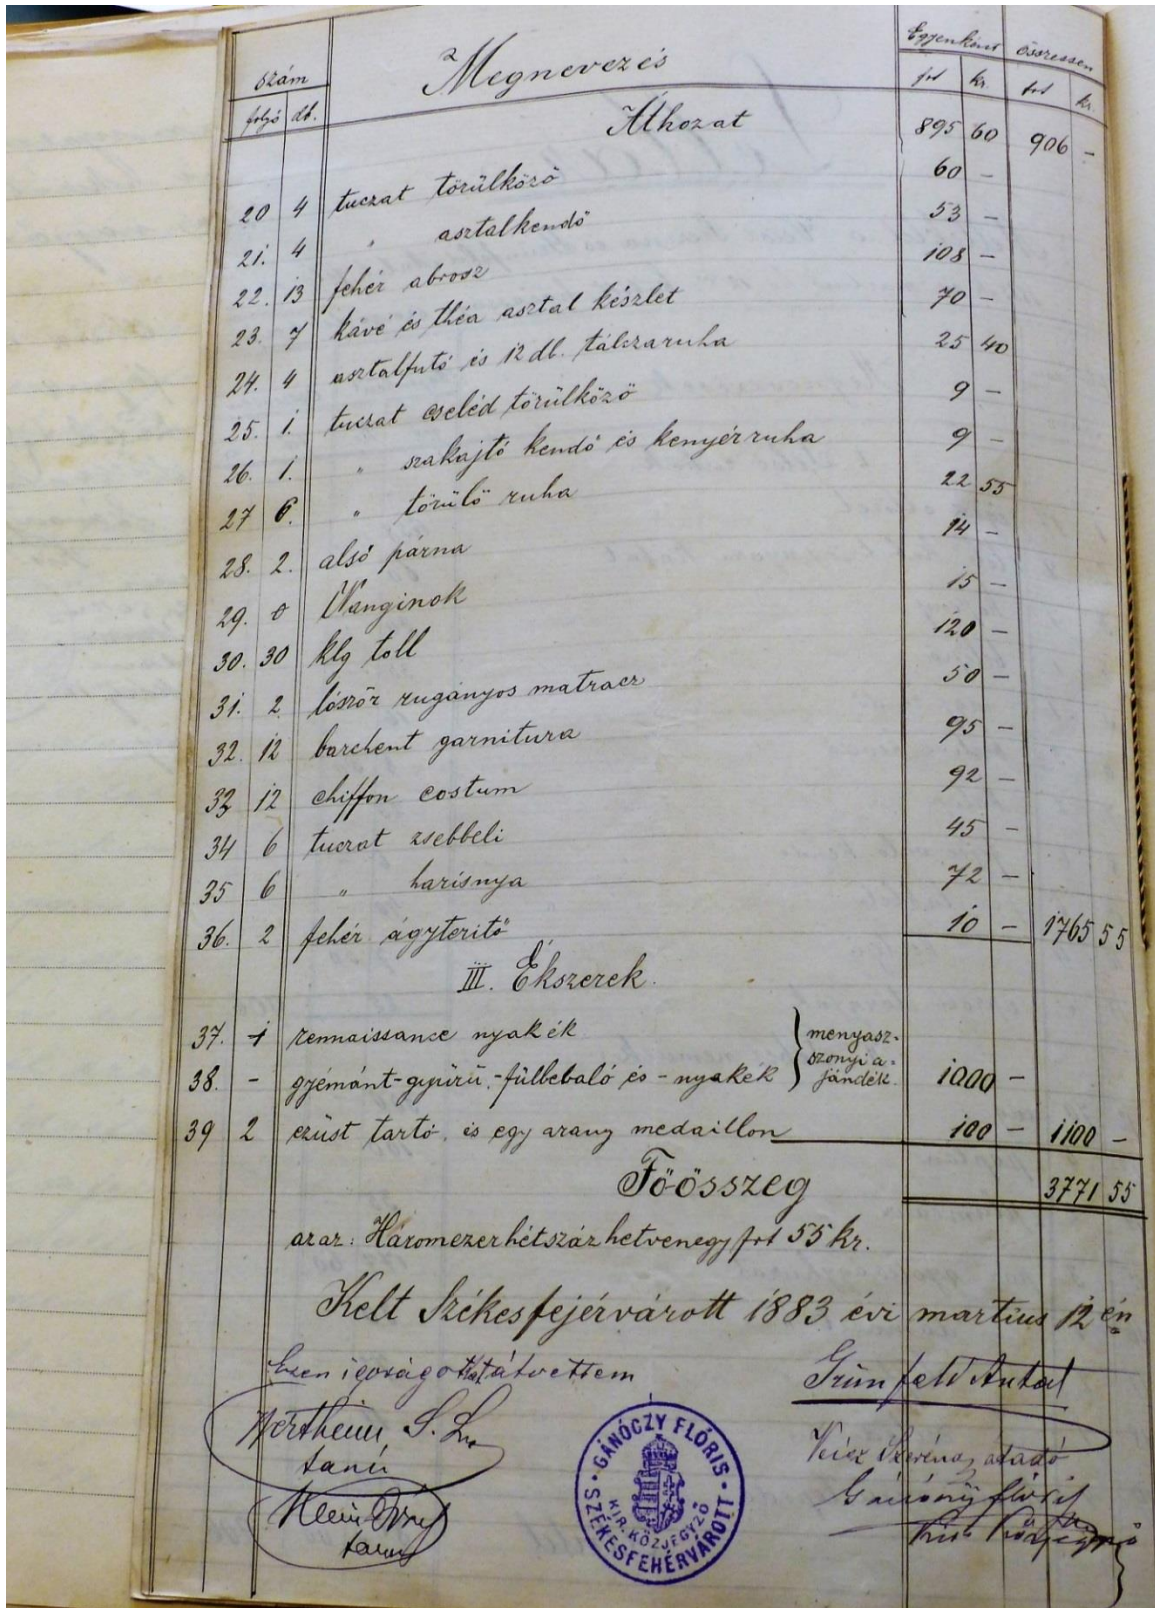 szám Megnevezés Egyenként összessen
folyó db. frt kr. frt kr.
Áthozat 895 60 906 -
20 4 tuczat törülköző 60 -
21. 4 " asztalkendő 53 -
22. 13 fehér abrosz 108 -
23. 7 kávé és théa asztal készlet 70 -
24. 4 asztalfutó és 12 db. tálczaruha 25 40
25. 1. tuczat cseléd törülköző 9 -
26. 1. " szakajtó kendő és kenyérruha 9 -
27 6. " törülő ruha 22 55
28. 2. alsó párna 14 -
29. 0 Nanginok 15 -
30. 30 klg toll 120 -
31. 2. lószőr rugányos matracz 50 -
32. 12 barchent garnitura 95 -
33 12 chiffon costum 92 -
34 6 tuczat zsebbeli 45 -
35 6 " harisnya 72 -
36. 2 fehér ágyteritő 10 - 1765 55
III. Ékszerek.
37. 1 rennaissance nyakék } menyasz-
szonyi a-
38. - gyémánt-gyürü,-fülbebaló és - nyakék jándék. 1000 -
39 2 ezüst tartó, és egy arany medaillon 100 - 1100 -
Főösszeg 3771 55
azaz: Háromezerhétszázhetvenegy frt 55 kr.
Kelt Székesfejérvárott 1883 évi martius 12 én
Ezen átvettem
Grünfeld Antal
Wertheim S.
tanú
átadó
Klein
tanú
GÁNÓCZY FLÓRIS
KIR. KÖZJEGYZŐ
SZÉKESFEHÉRVÁROTT